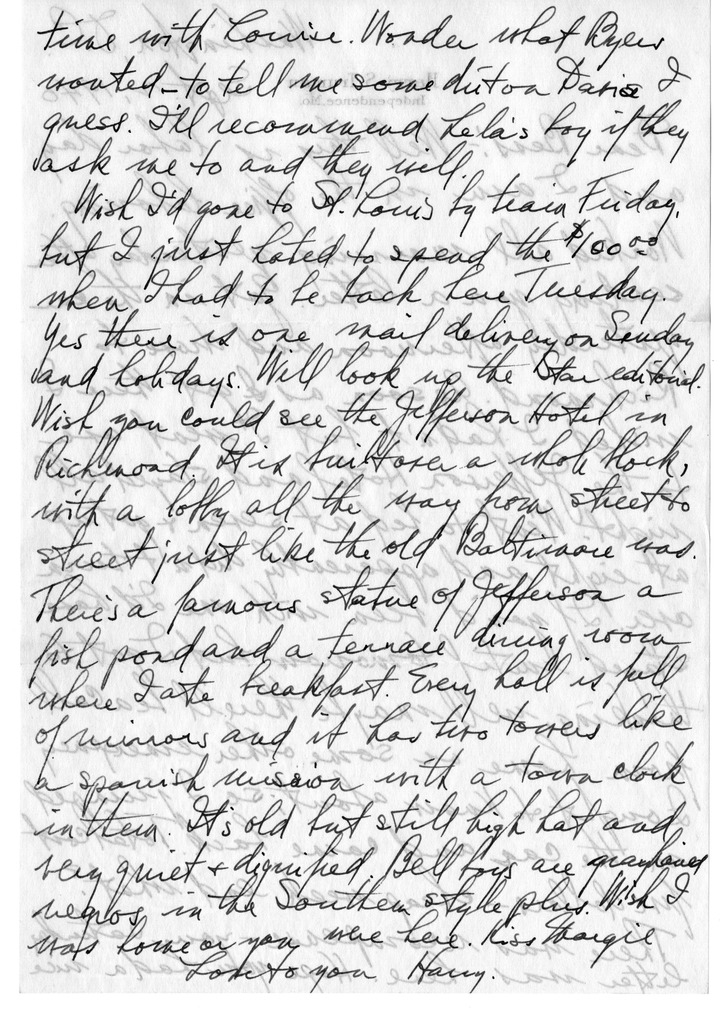 time with Louise. Wonder what Byers
wanted - to tell me some dirt on Davis I
guess. I'll recommend Lela's boy if they
ask me to and they will.
Wish I'd gone to St. Louis by train Friday,
but I just hated to spend the $100.00
when I had to be back here Tuesday.
Yes there is one mail delivery on Sunday
and holidays. Will look up the Star editorial.
Wish you could see the Jefferson Hotel in
Richmond. It is built over a whole block,
with a lobby all the way from street to
street just like the old Baltimore was.
There's a famous statue of Jefferson a
fish pond and a terrace dining room
where I ate breakfast. Every hall is full
of mirrors and it has two towers like
a spanish mission with a town clock
in them. It's old but still high hat and
very quiet & dignified. Bell boys are grayhaired
negros in the Southern style plus. Wish I
was home or you were here. Kiss Margie
Love to you Harry.